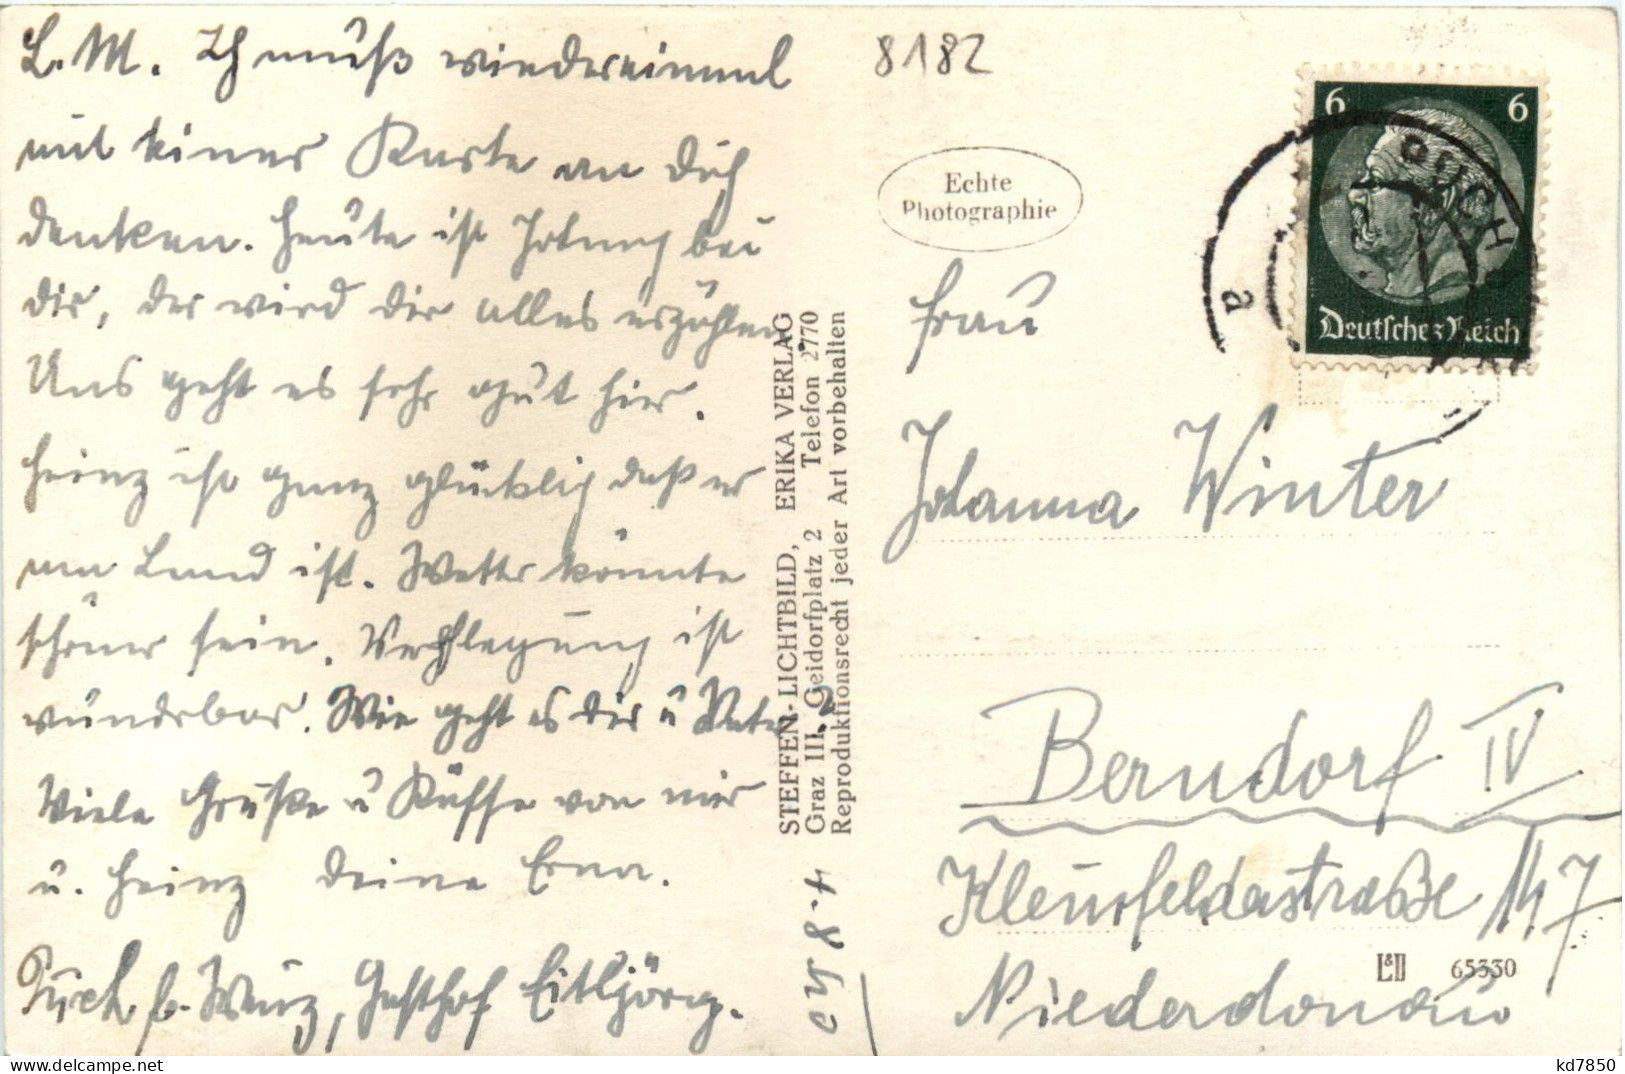 L. M. Ich muß wiedereinmal
mit einer Karte an Dich
denken. Heute ist Johann bei
dir, der wird dir alles erzählen
Uns geht es sehr gut hier.
Heinz ist ganz glücklich daß er
am Land ist. Wetter könnte
schöner sein. Verpflegung ist
wunderbar. Wie geht es dir u Vater?
Viele Grüße u Küsse von mir
u. Heinz deine Erna.
Puch b. Weiz, Gasthof Eitljörg.
STEFFEN-LICHTBILD, ERIKA VERLAG
Graz III, Geidorfplatz 2 Telefon 2770
Reproduktionsrecht jeder Art vorbehalten
8182
Echte
Photographie
6 6
Deutsches Reich
PUCH
a
Frau
Johanna Winter
Berndorf IV
Kleinfeldastraße 147
Niederdonau
L&D 65330
kd7850